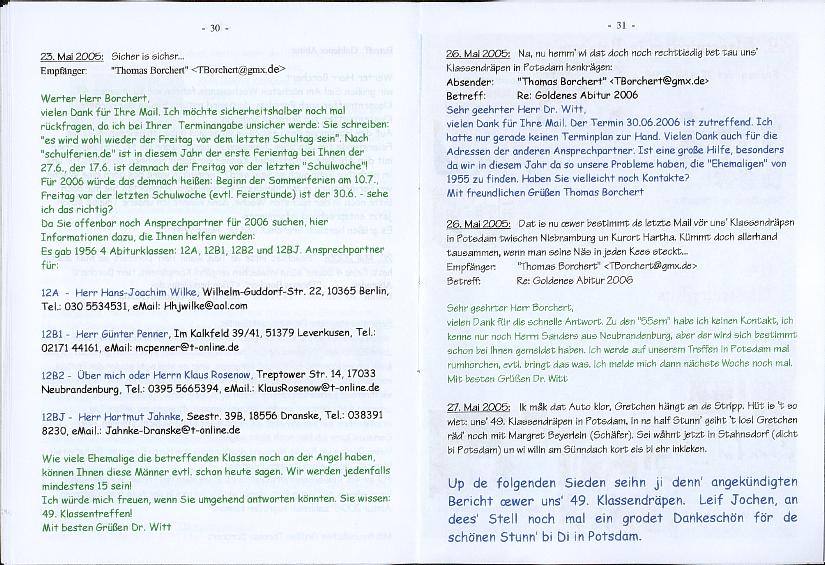 - 30 -
23. Mai 2005: Sicher is sicher...
Empfänger: "Thomas Borchert" <TBorchert@gmx.de>
Werter Herr Borchert,
vielen Dank für Ihre Mail. Ich möchte sicherheitshalber noch mal
rückfragen, da ich bei Ihrer Terminangabe unsicher werde: Sie schreiben:
"es wird wohl wieder der Freitag vor dem letzten Schultag sein". Nach
"schulferien.de" ist in diesem Jahr der erste Ferientag bei Ihnen der
27.6., der 17.6. ist demnach der Freitag vor der letzten "Schulwoche"!
Für 2006 würde das demnach heißen: Beginn der Sommerferien am 10.7.,
Freitag vor der letzten Schulwoche (evtl. Feierstunde) ist der 30.6. - sehe
ich das richtig?
Da Sie offenbar noch Ansprechpartner für 2006 suchen, hier
Informationen dazu, die Ihnen helfen werden:
Es gab 1956 4 Abiturklassen: 12A, 12B1, 12B2 und 12BJ. Ansprechpartner
für:
12A - Herr Hans-Joachim Wilke, Wilhelm-Guddorf-Str. 22, 10365 Berlin,
Tel.: 030 5534531, eMail: Hhjwilke@aol.com
12B1 - Herr Günter Penner, Im Kalkfeld 39/41, 51379 Leverkusen, Tel.:
02171 44161, eMail: mcpenner@t-online.de
12B2 - Über mich oder Herrn Klaus Rosenow, Treptower Str. 14, 17033
Neubrandenburg, Tel.: 0395 5665394, eMail.: KlausRosenow@t-online.de
12BJ - Herr Hartmut Jahnke, Seestr. 39B, 18556 Dranske, Tel.: 038391
8230, eMail.: Jahnke-Dranske@t-online.de
Wie viele Ehemalige die betreffenden Klassen noch an der Angel haben,
können Ihnen diese Männer evtl. schon heute sagen. Wir werden jedenfalls
mindestens 15 sein!
Ich würde mich freuen, wenn Sie umgehend antworten könnten. Sie wissen:
49. Klassentreffen!
Mit besten Grüßen Dr. Witt
- 31 -
26. Mai 2005: Na, nu hemm' wi dat doch noch rechttiedig bet tau uns'
Klassendräpen in Potsdam henkrägen:
Absender: "Thomas Borchert" <TBorchert@gmx.de>
Betreff: Re: Goldenes Abitur 2006
Sehr geehrter Herr Dr. Witt,
vielen Dank für Ihre Mail. Der Termin 30.06.2006 ist zutreffend. Ich
hatte nur gerade keinen Terminplan zur Hand. Vielen Dank auch für die
Adressen der anderen Ansprechpartner. Ist eine große Hilfe, besonders
da wir in diesem Jahr da so unsere Probleme haben, die "Ehemaligen" von
1955 zu finden. Haben Sie vielleicht noch Kontakte?
Mit freundlichen Grüßen Thomas Borchert
26. Mai 2005: Dat is nu œwer bestimmt de letzte Mail vör uns' Klassendräpen
in Potsdam twischen Niebramburg un Kurort Hartha. Kümmt doch allerhand
tausammen, wenn man seine Näs in jeden Kees steckt...
Empfänger: "Thomas Borchert" <TBorchert@gmx.de>
Betreff: Re: Goldenes Abitur 2006
Sehr geehrter Herr Borchert,
vielen Dank für die schnelle Antwort. Zu den "55ern" habe ich keinen Kontakt, ich
kenne nur noch Herrn Sanders aus Neubrandenburg, aber der wird sich bestimmt
schon bei Ihnen gemeldet haben. Ich werde auf unserem Treffen in Potsdam mal
rumhorchen, evtl. bringt das was. Ich melde mich dann nächste Woche noch mal.
Mit besten Grüßen Dr. Witt
27. Mai 2005: Ik mäk dat Auto klor, Gretchen hängt an de Stripp. Hüt is 't so
wiet: uns' 49. Klassendräpen in Potsdam, in ne half Stunn' geiht 't los! Gretchen
räd' noch mit Margret Beyerlein (Schäfer). Sei wähnt jetzt in Stahnsdorf (dicht
bi Potsdam) un wi willn am Sünndach kort eis bi ehr inkieken.
Up de folgenden Sieden seihn ji denn' angekündigten
Bericht œwer uns' 49. Klassendräpen. Leif Jochen, an
dees' Stell noch mal ein grodet Dankeschön för de
schönen Stunn' bi Di in Potsdam.